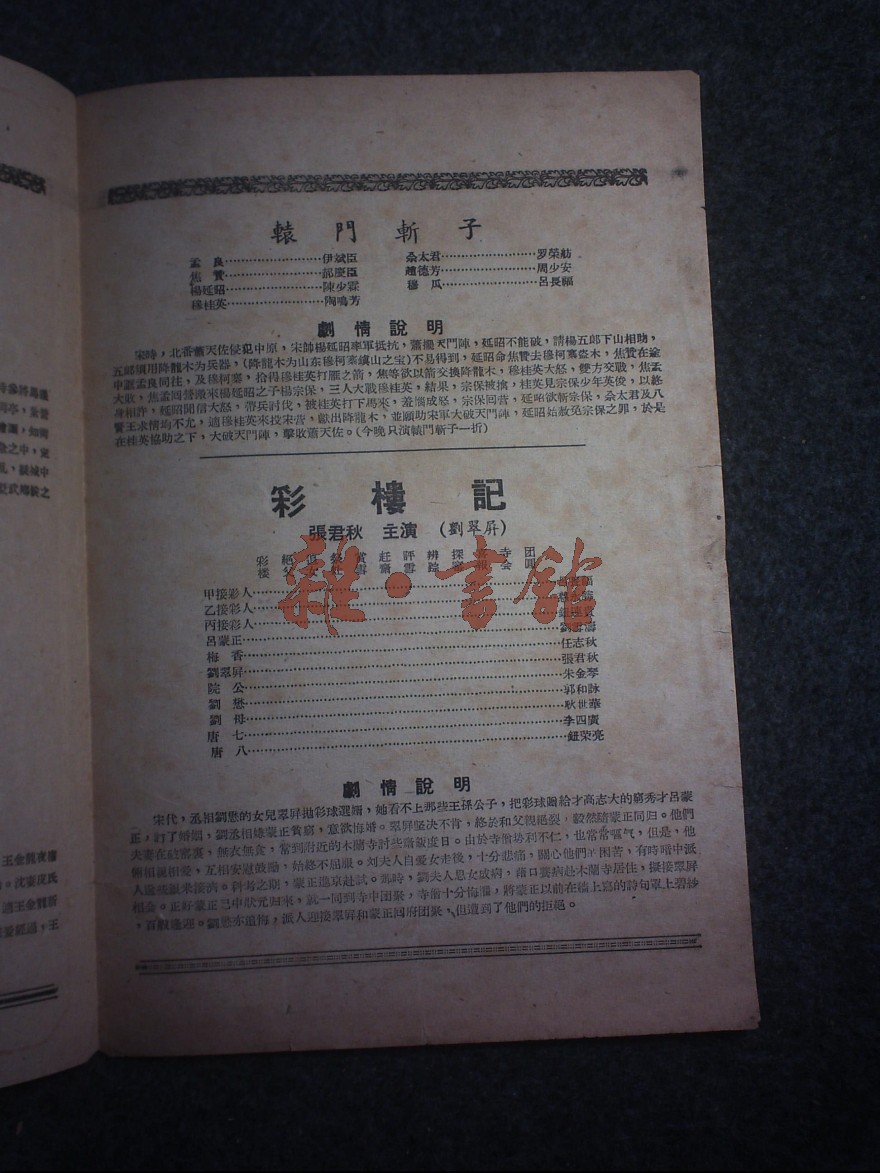 轅門斬子
孟良 伊斌臣 佘太君 罗榮舫
焦贊 郝慶臣 趙德芳 周少安
楊延昭 陳少霖 穆瓜 呂長福
穆桂英 陶鳴芳
劇情說明
宋時，北番蕭天佐侵犯中原，宋帥楊延昭率軍抵抗，蕭擺天門陣，延昭不能破，請楊五郎下山相助，
五郎須用降龍木为兵器，(降龍木为山东穆柯寨鎮山之宝)不易得到，延昭命焦贊去穆柯寨盗木，焦贊在途
中邀孟良同往，及穆柯寨，拾得穆桂英打雁之箭，焦等欲以箭交換降龍木，穆桂英大怒，雙方交戰，焦孟
大敗，焦孟回營搬來楊延昭之子楊宗保，三人大戰穆桂英，結果，宗保被擒，桂英見宗保少年英俊，以終
身相許，延昭聞信大怒，帶兵討伐，被桂英打下馬來，羞惱成怒，宗保回营，延昭欲斬宗保，佘太君及八
賢王求情均不允，適穆桂英來投宋营，獻出降龍木，並願助宋軍大破天門陣，延昭始赦免宗保之罪，於是
在桂英協助之下，大破天門陣，擊敗蕭天佐。(今晚只演轅門斬子一折)
彩樓記
張君秋 主演 (劉翠屏)
彩 絕 祭 賞 赶 評 辨 探 寺 团
楼 女 灶 雪 齋 雪 踪 会 圓
甲接彩人
乙接彩人
丙接彩人
呂蒙正
梅香 任志秋
劉翠屏 張君秋
院公 朱金琴
劉懋 郭和詠
劉母 耿世華
唐七 李四廣
唐八 鈕荣亮
劇情說明
宋代，丞相劉懋的女兒翠屏抛彩球選婿，她看不上那些王孫公子，把彩球贈給才高志大的窮秀才呂蒙
正，訂了婚姻，劉丞相嫌蒙正貧窮，意欲悔婚。翠屏坚决不肯，終於和父親絕裂，毅然隨蒙正同归。他們
夫妻在破窑裏，無衣無食，常到附近的木蘭寺討些齋飯度日。由於寺僧势利不仁，也常常嘔气，但是，他
倆相親相愛，互相安慰鼓勵，始終不屈服。刘夫人自愛女走後，十分悲痛，關心他們的困苦，有時暗中派
人送些銀米接濟。科考之期，蒙正進京赴試。那時，劉夫人思女成病，藉口養病赴木蘭寺居住，擬接翠屏
相会。正好蒙正已中狀元归來，就一同到寺中团聚，寺僧十分悔懼，將蒙正以前在墙上寫的詩句罩上碧紗
，百般逢迎。劉懋亦追悔，派人迎接翠屏和蒙正囘府团聚，但遭到了他們的拒絕。
雜·書館